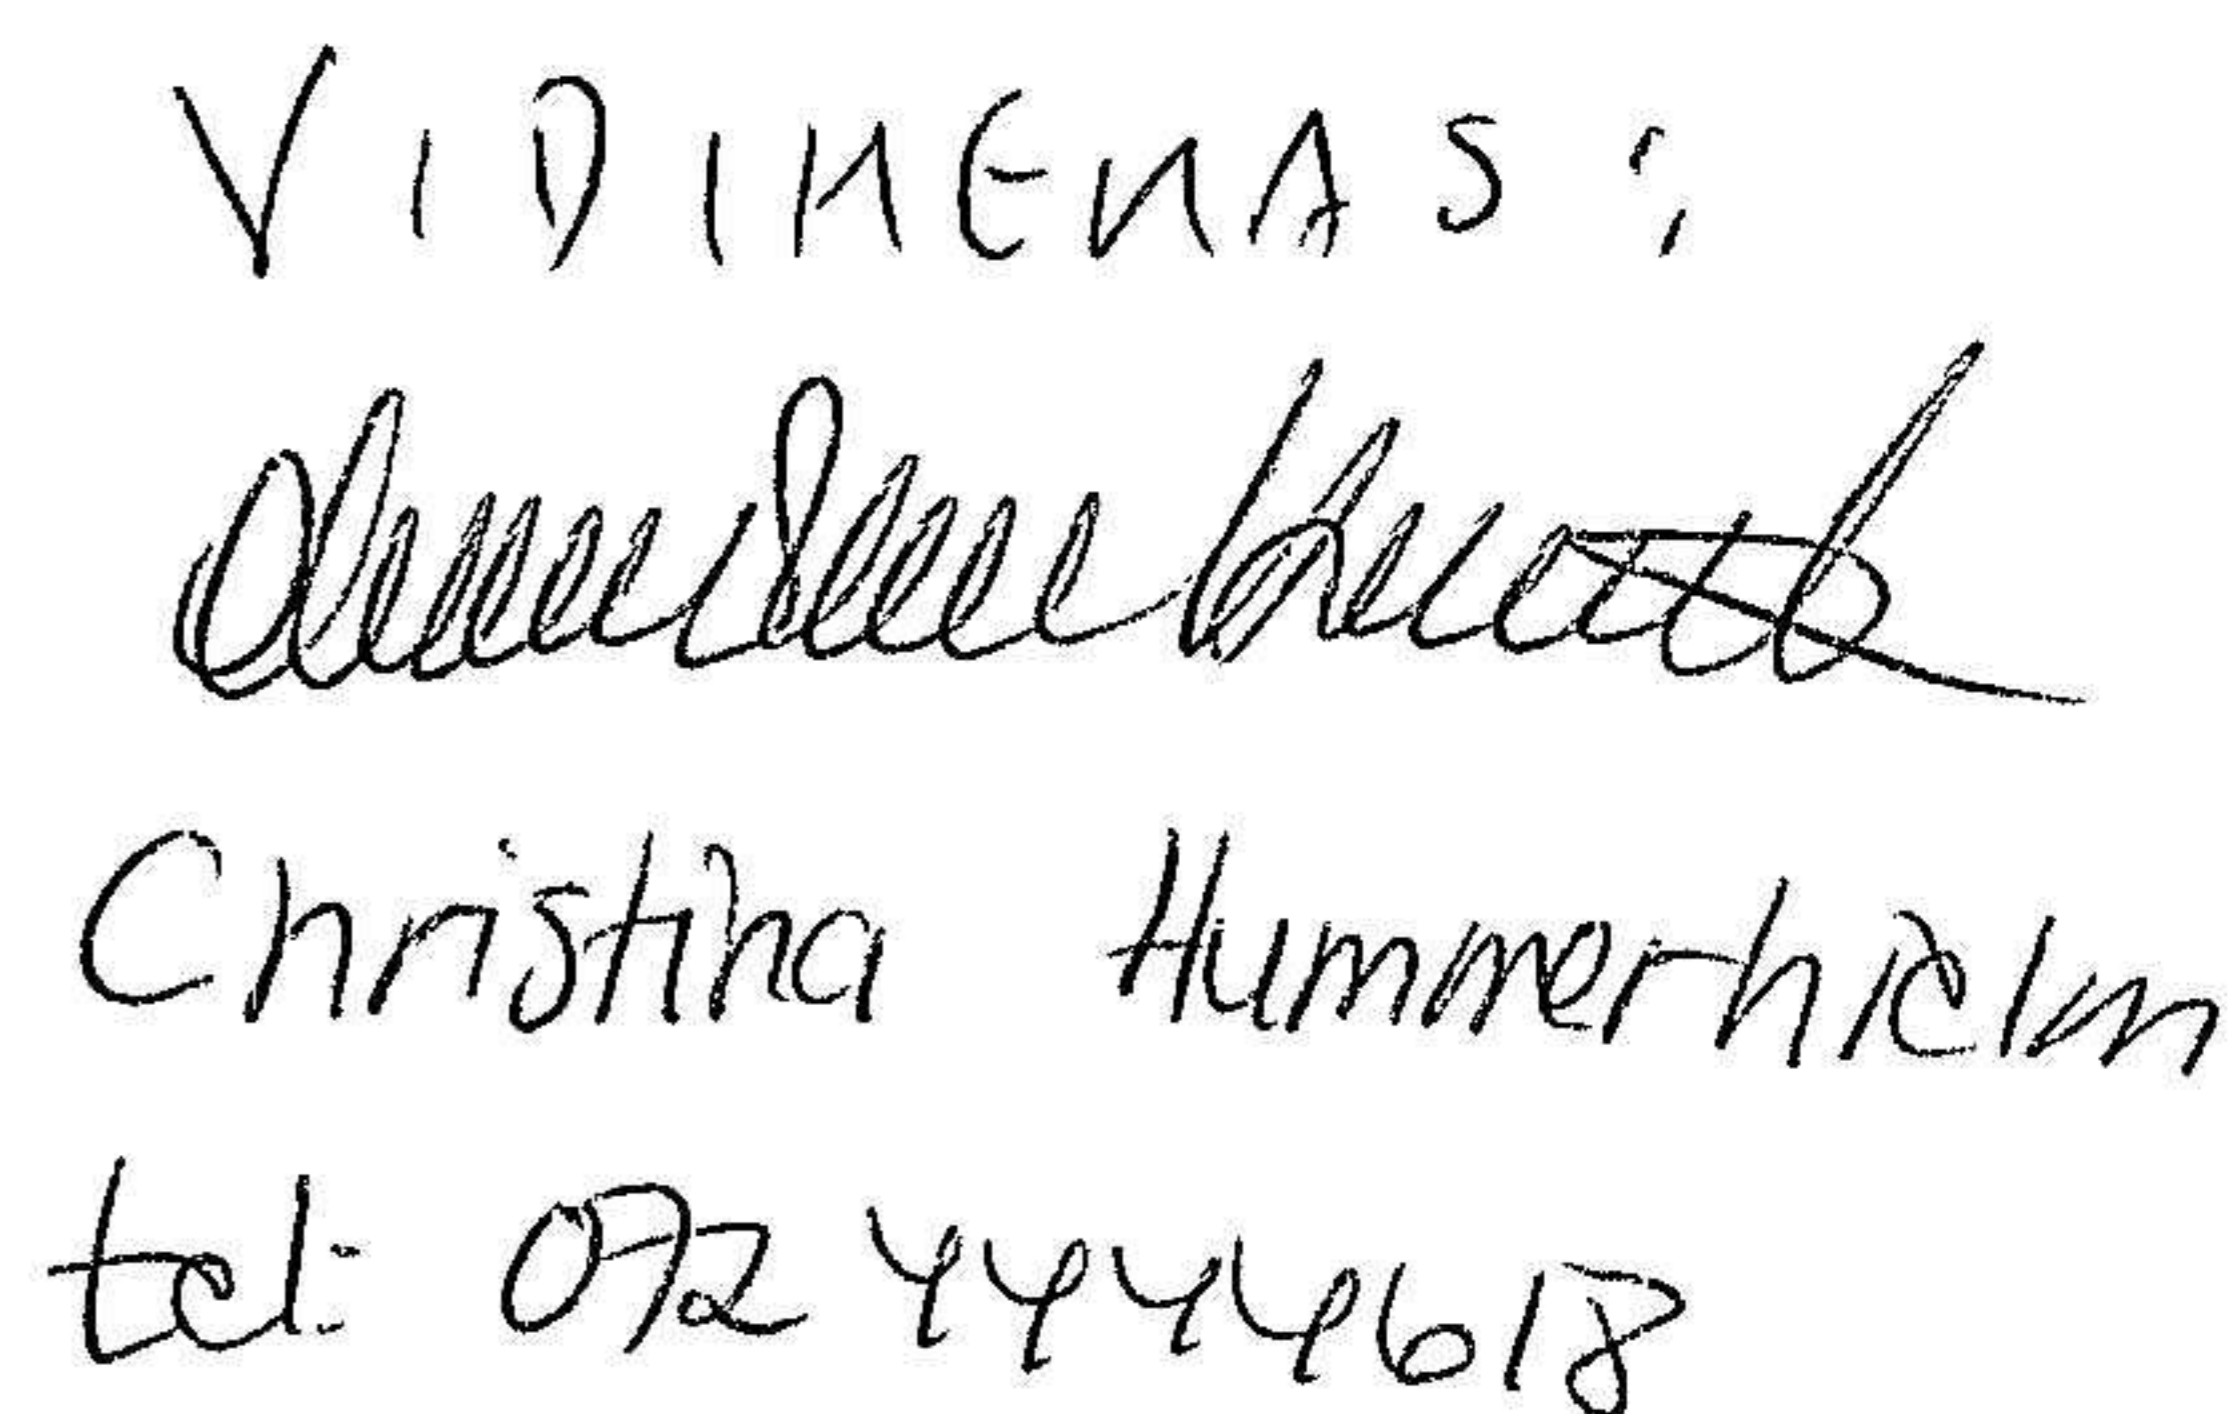 VIDIMERAS:
Christina Hummerhielm
tel: 072 4444618